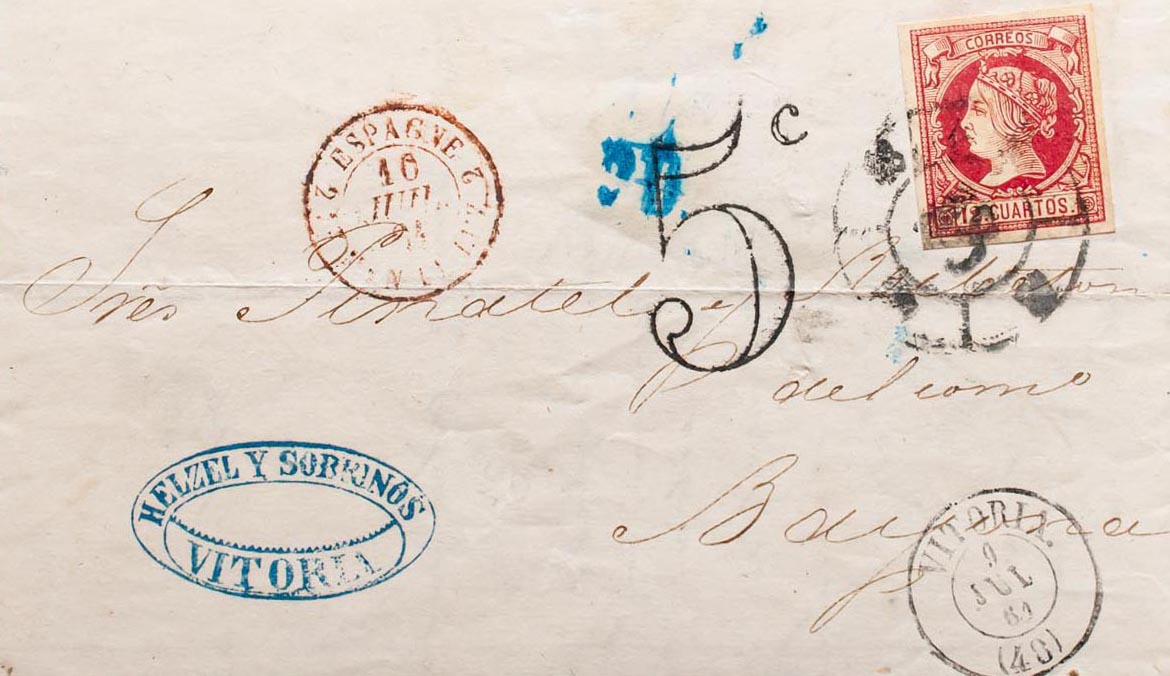 CORREOS
12 CUARTOS.
5 c
2 ESPAGNE 2
10
JUIL.
Sres Pinatel y
del comº
Bayona
HELZEL Y SOBRINOS
VITORIA
VITORIA.
9
JUL
(48)